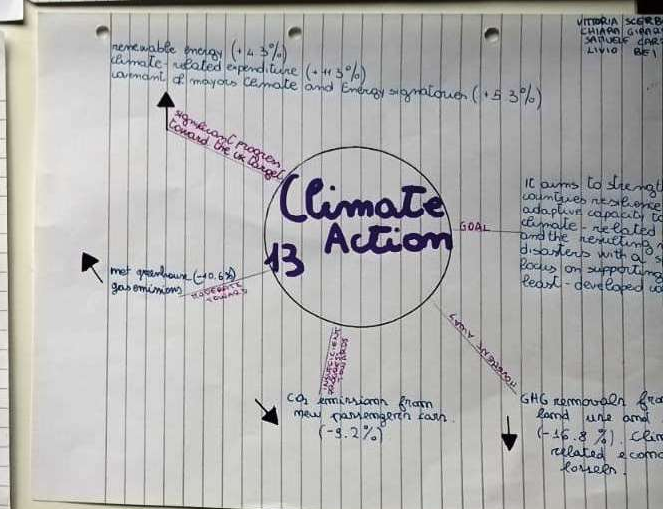 VITTORIA SCERB
CHIARA GIRAR
SAMUELE CAR
LIVIO BEI
renewable energy (+4.3%)
climate-related expenditure (++3%)
covenant of mayors Climate and Energy signatories (+5.3%)
significant progress
toward the target
Climate
Action
13
GOAL
It aims to strength
countries resilience
adaptive capacity to
climate-related
and the resulting
disasters with a s
focus on supporting
least-developed co
met greenhouse (-10.6%)
gas emissions
MODERATE
TOWARDS
INSUFICIENT
PROGRESS
TOWARDS
CO2 emissions from
new passengers cars.
(-9.2%)
MOVEMENT AWAY
GHG removals fro
land use and
(-16.8%). Clim
related econo
losses.